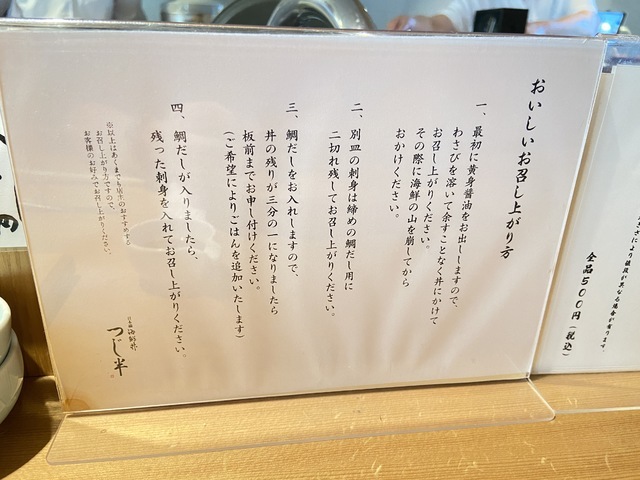 おいしいお召し上がり方
一、最初に黄身醤油をお出ししますので、
わさびを溶いて余すことなく丼にかけて
お召し上がりください。
その際に海鮮の山を崩してから
おかけください。
二、別皿の刺身は締めの鯛だし用に
二切れ残してお召し上がりください。
三、鯛だしをお入れしますので、
丼の残りが三分の一になりましたら
板前までお申し付けください。
(ご希望によりごはんを追加いたします)
四、鯛だしが入りましたら、
残った刺身を入れてお召し上がりください。
※以上はあくまでも店主のおすすめする
お召し上がり方ですので、
お客様のお好みでお召し上がりください。
日本橋 海鮮丼
つじ半
により値段が異なる場合が有ります。
全品500円(税込)
円